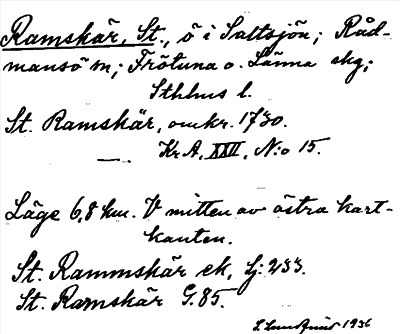 Ramskär, St., ö i Saltsjön; Råd-
mansö sn; Frötuna o. Länna skg;
Sthlms l.
St. Ramskär, omkr. 1730.
— Kr A, XXII, N:o 15.
Läge 6,8 km. V mitten av östra kart-
kanten.
St. Rammskär ek, Lj: 233.
St. Ramskär G. 85.
1936